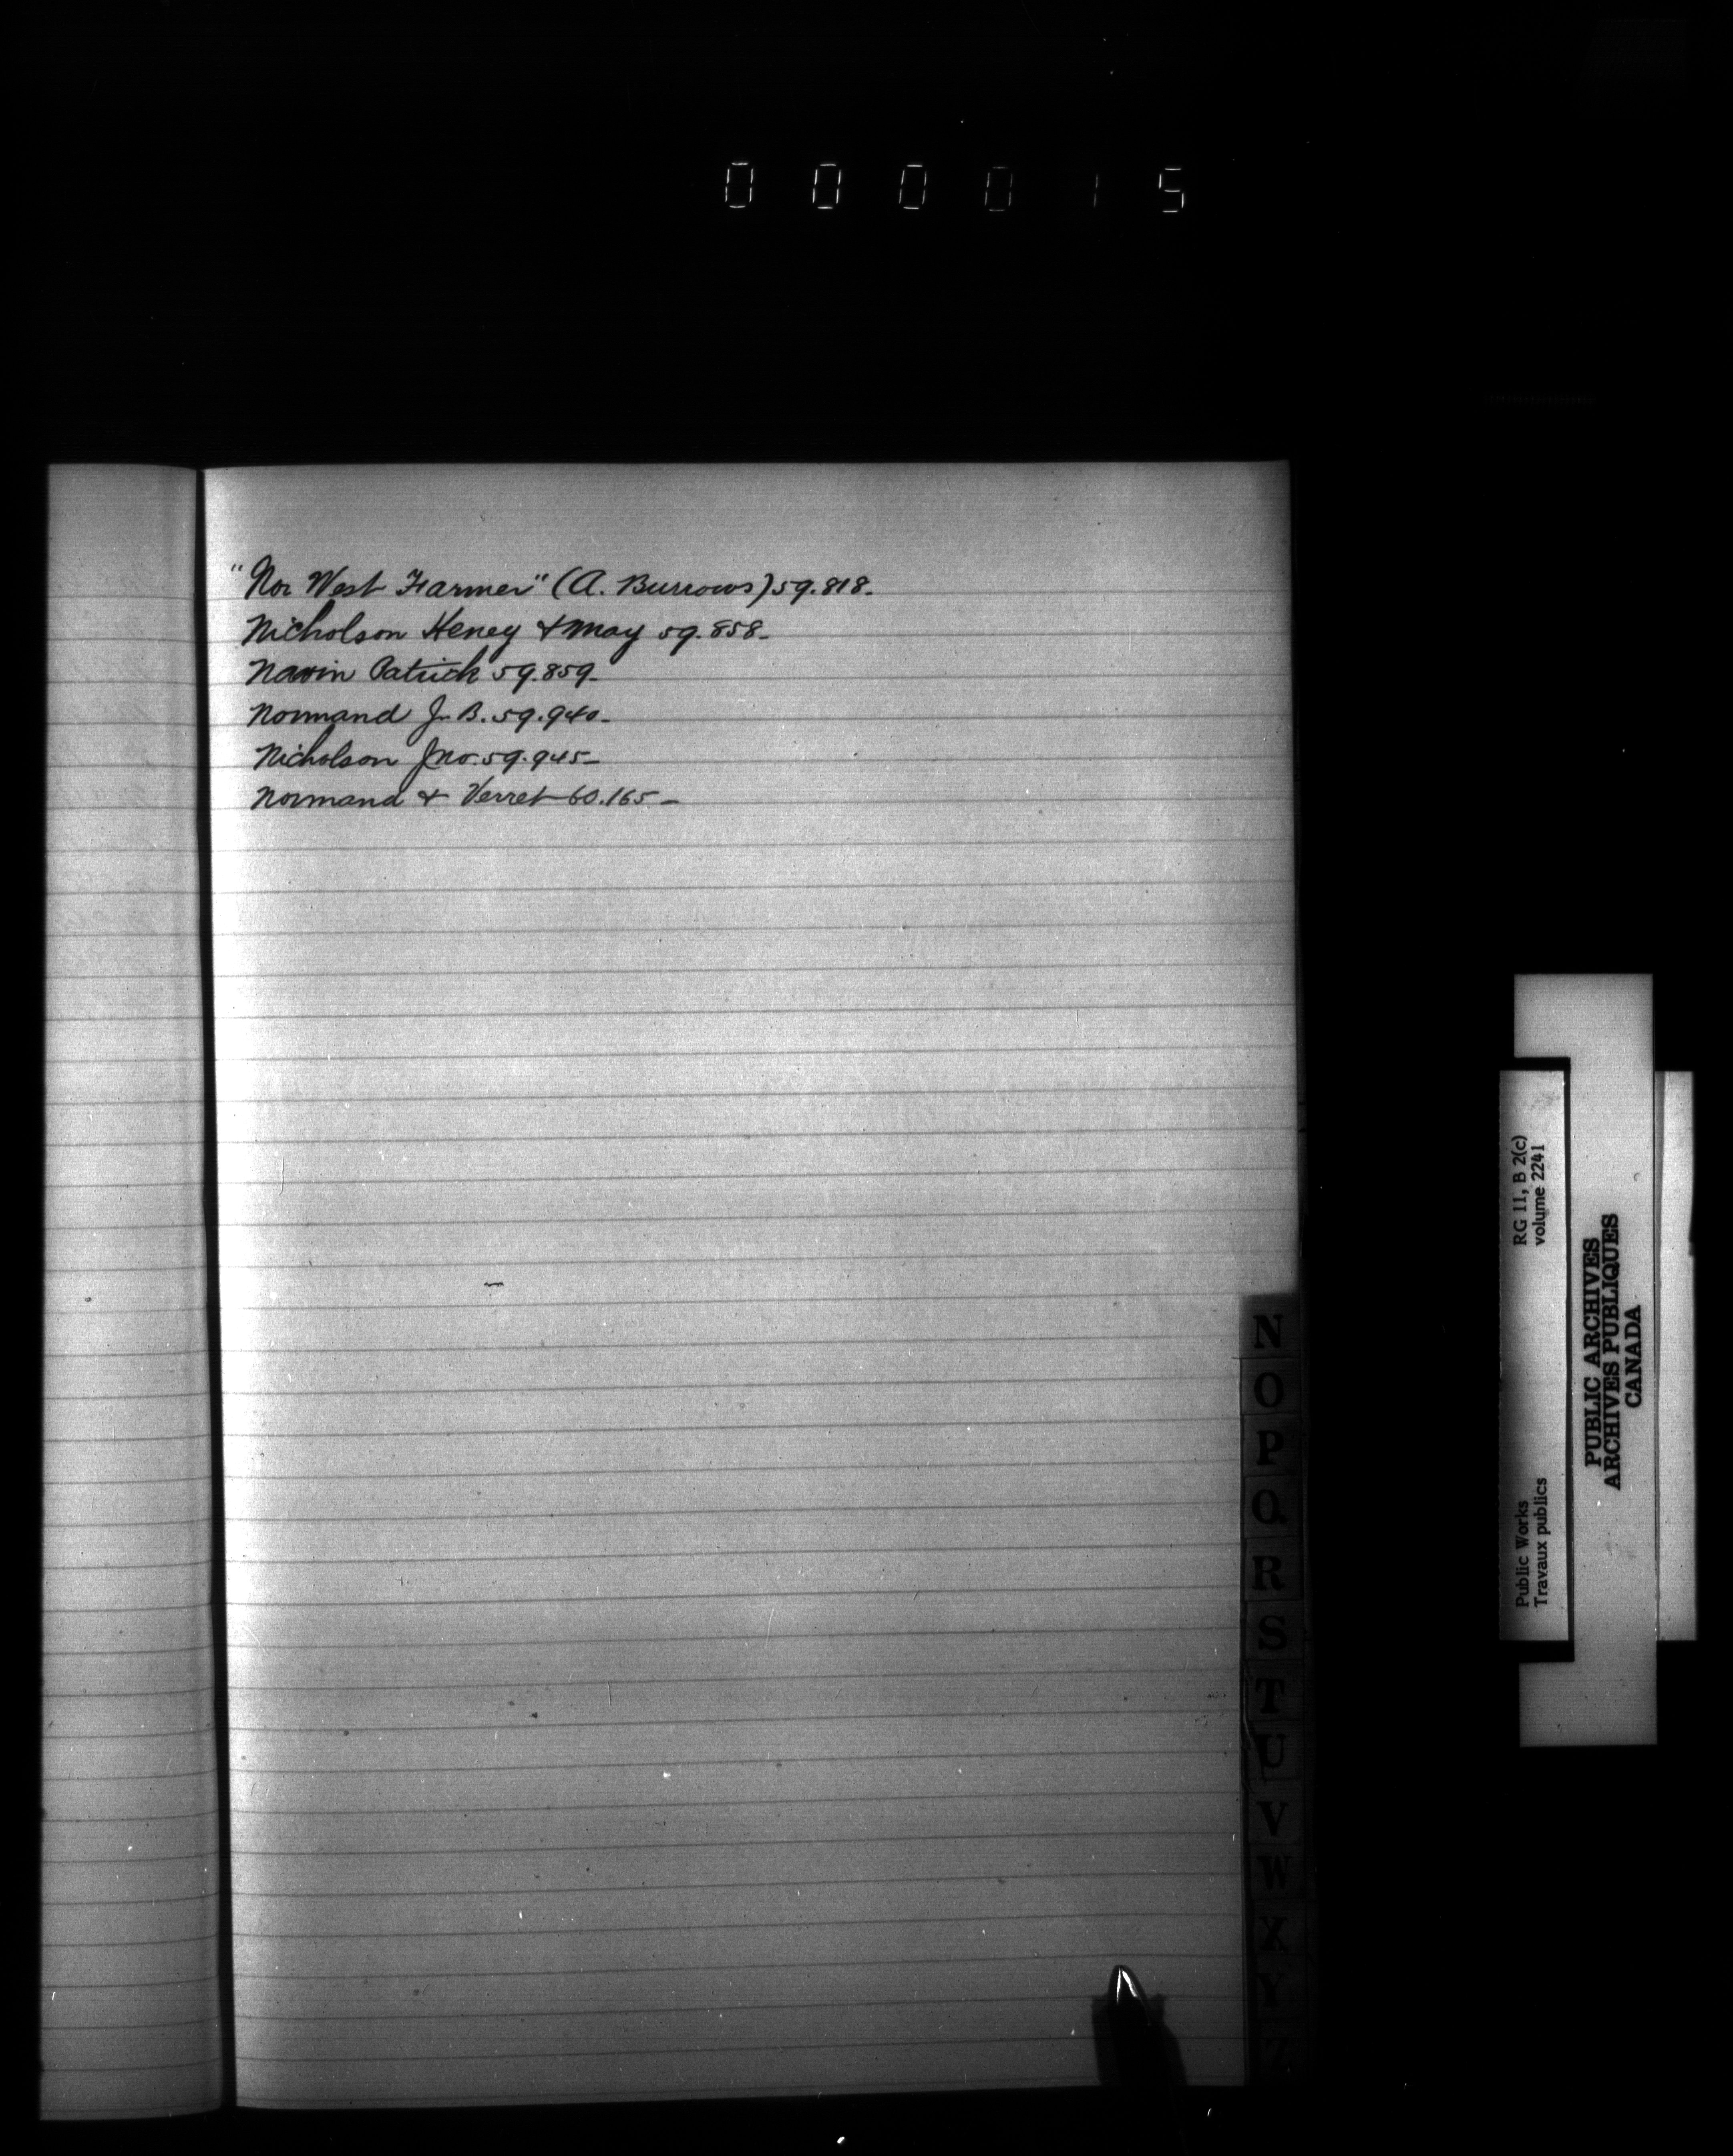 000015
"Nor West Farmer" (A. Burrows) 59.818-
Nicholson Heney & May 59.858-
Navin Patrick 59.859-
Normand J. B. 59.940-
Nicholson Jno. 59.945-
Normand & Verret 60.165-
N
O
P
Q
R
S
T
U
V
W
X
Y
Z
RG 11, B 2(c)
volume 2241
Public Works
Travaux publics
PUBLIC ARCHIVES
ARCHIVES PUBLIQUES
CANADA